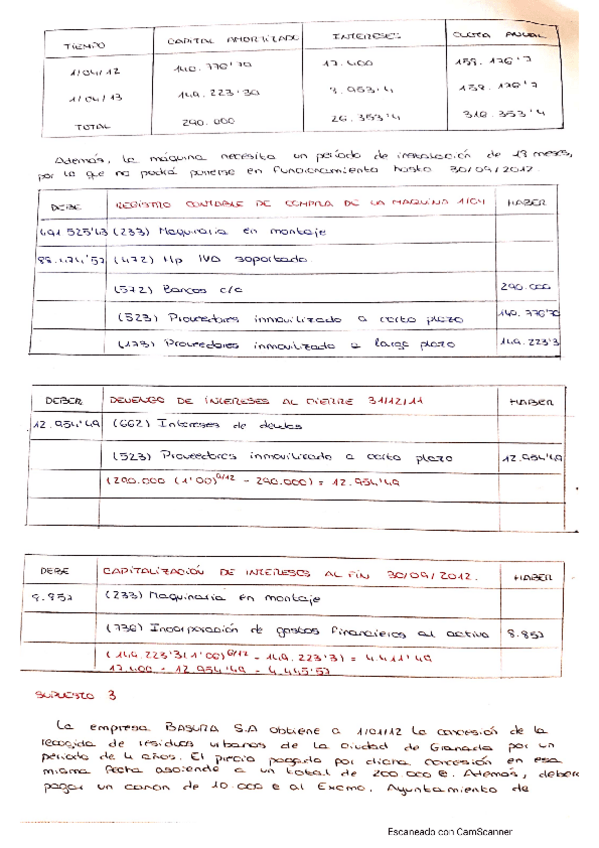 TIEMPO CAPITAL AMORTIZADO INTERESES CUOTA ANUAL
1/04/12 140.776'70 17.400 158.176'7
1/04/13 149.223'30 8.953'4 158.176'7
TOTAL 290.000 26.353'4 316.353'4
Además, la máquina necesita un período de instalación de 18 meses,
por lo que no podrá ponerse en funcionamiento hasta 30/09/2012.
DEBE REGISTRO CONTABLE DE COMPRA DE LA MAQUINA 1/04 HABER
491 525'43 (233) Maquinaria en montaje
88.474'57 (472) Hp IVA soportado
(572) Bancos c/c 290.000
(523) Proveedores inmovilizado a corto plazo 140.776'70
(173) Proveedores inmovilizado a largo plazo 149.223'3
DEBER DEVENGO DE INTERESES AL CIERRE 31/12/11 HABER
12.954'49 (662) Intereses de deudas
(523) Proveedores inmovilizado a corto plazo 12.954'49
(290.000 (1'06)^9/12 - 290.000) = 12.954'49
DEBE CAPITALIZACIÓN DE INTERESES AL FIN 30/09/2012. HABER
8.857 (233) Maquinaria en montaje
(736) Incorporación de gastos financieros al activo 8.857
(149.223'3(1'06)^6/12 - 149.223'3) = 4.411'49
17.400 - 12.954'49 - 4.445'57
SUPUESTO 3
La empresa BASURA S.A obtiene a 1/01/12 la concesión de la
recogida de residuos urbanos de la ciudad de Granada por un
período de 4 años. El precio pagado por dicha concesión en esa
misma fecha asciende a un total de 200.000 €. Además, deberá
pagar un canon de 10.000 € al Excmo. Ayuntamiento de
Escaneado con CamScanner